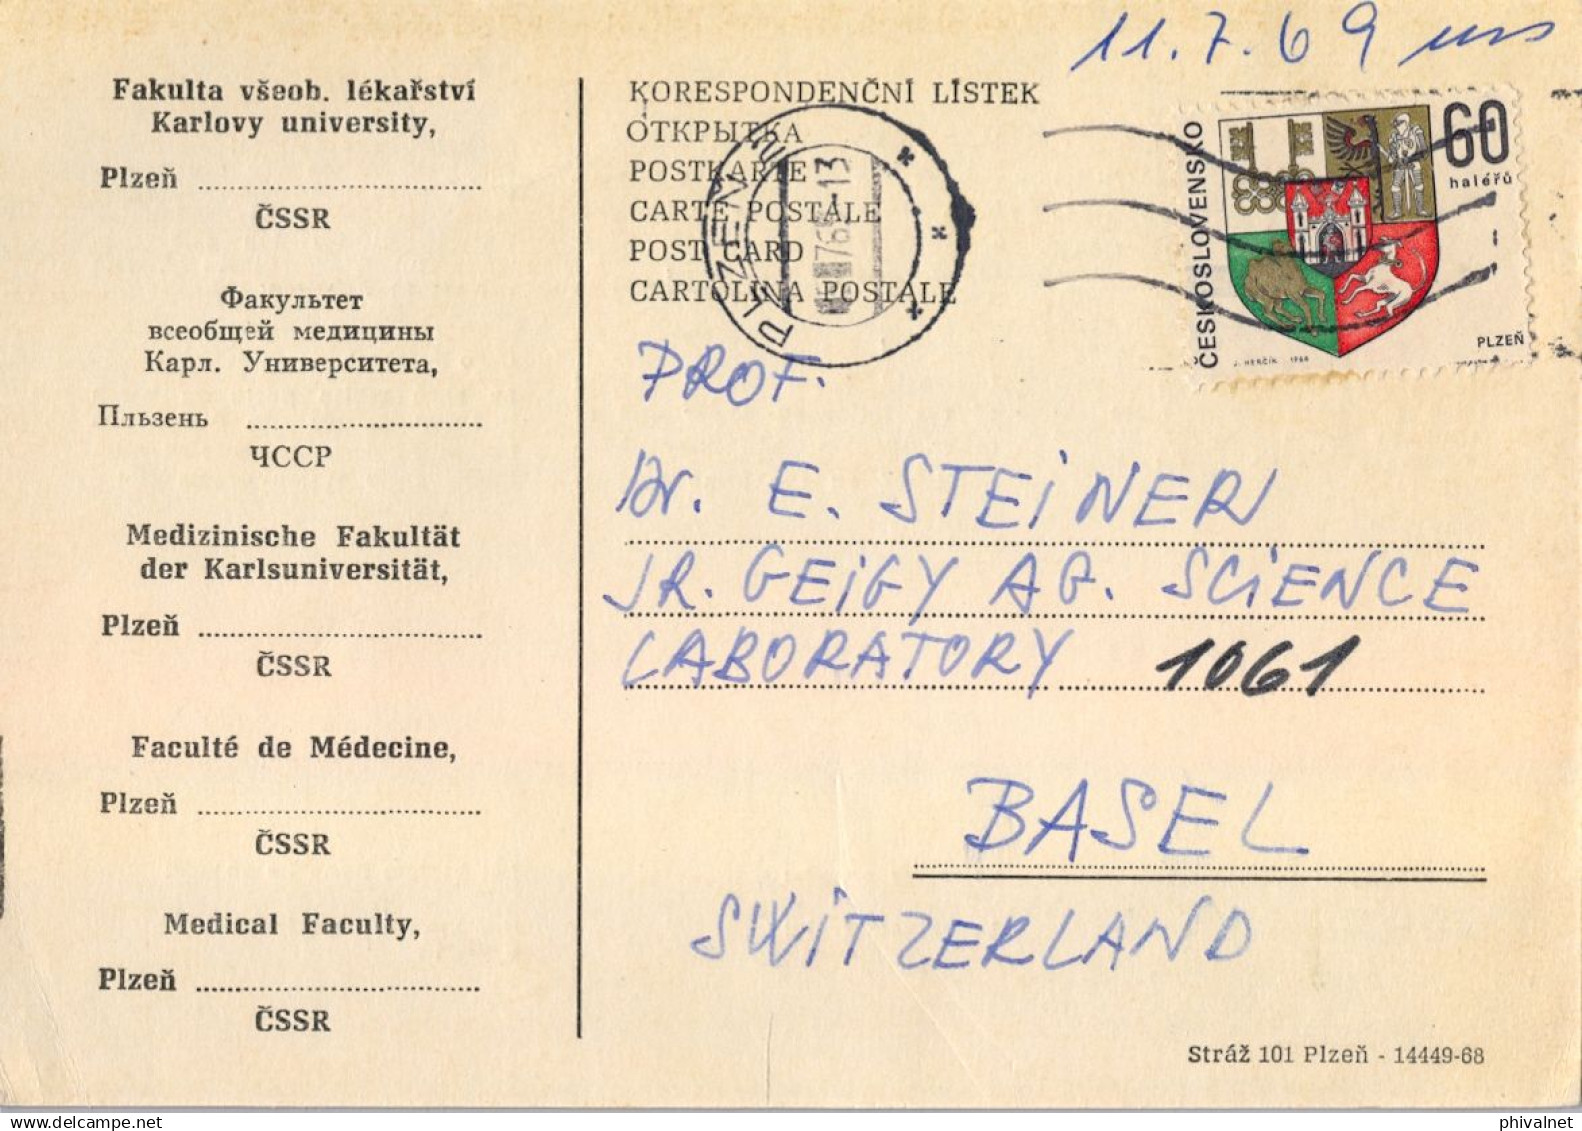 11.7.69
Fakulta všeob. lékařství
Karlovy university,
Plzeň
ČSSR
Факультет
всеобщей медицины
Карл. Университета,
Пльзень
ЧССР
Medizinische Fakultät
der Karlsuniversität,
Plzeň
ČSSR
Faculté de Médecine,
Plzeň
ČSSR
Medical Faculty,
Plzeň
ČSSR
KORESPONDENČNÍ LÍSTEK
ОТКРЫТКА
POSTKARTE
CARTE POSTALE
POST CARD
CARTOLINA POSTALE
PLZEŇ
ČESKOSLOVENSKO
60
haléřů
PLZEŇ
J. HERČÍK 1968
PROF.
Dr. E. STEINER
JR. GEIGY AG. SCIENCE
LABORATORY 1061
BASEL
SWITZERLAND
Stráž 101 Plzeň - 14449-68
phivalnet